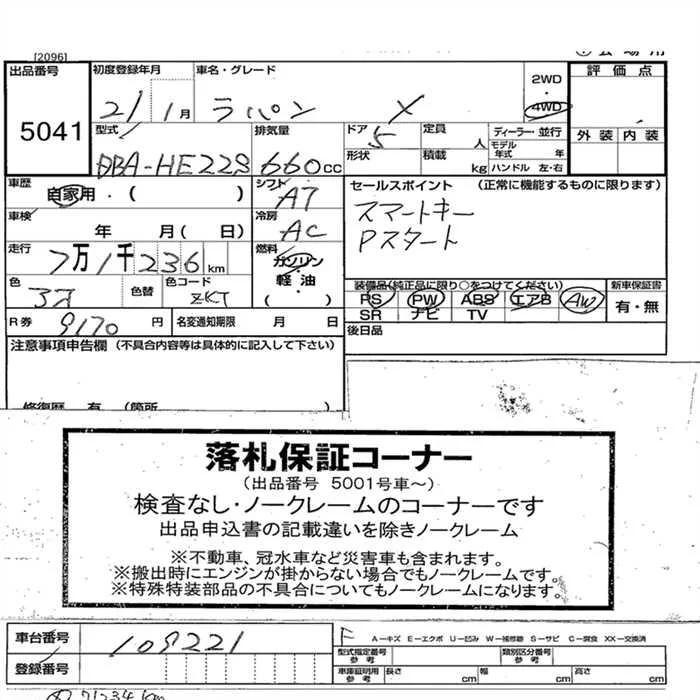 [2096]
出品番号 初度登録年月 車名・グレード 2WD・4WD 評価点
5041 21 1月 ラパン X 外装 内装
型式 排気量 ドア 定員 人 ディーラー・並行
モデル年式 年
DBA-HE22S 660cc 5 形状 積載 kg ハンドル 左・右
車歴 自家用・( ) シフト AT セールスポイント (正常に機能するものに限ります)
車検 年 月( 日) 冷房 AC スマートキー
Pスタート
走行 7万1千236km 燃料 ガソリン・軽油( )
色 色替 色コード ZKT 装備品(純正品に限り○をつけてください) 新車保証書
PS PW ABS エアB AW 有・無
SR ナビ TV
R券 9170円 名変通知期限 月 日 後日品
注意事項申告欄 (不具合内容等は具体的に記入して下さい)
修復歴 有 (箇所
落札保証コーナー
(出品番号 5001号車〜)
検査なし・ノークレームのコーナーです
出品申込書の記載違いを除きノークレーム
※不動車、冠水車など災害車も含まれます。
※搬出時にエンジンが掛からない場合でもノークレームです。
※特殊特装部品の不具合についてもノークレームになります。
車台番号 109221 F A-キズ E-エクボ U-凹み W-補修跡 S-サビ C-腐食 XX-交換済
型式指定番号 参考 類別区分番号 参考
登録番号 車庫証明用 参考 長さ cm 幅 cm 高さ cm
71234 km